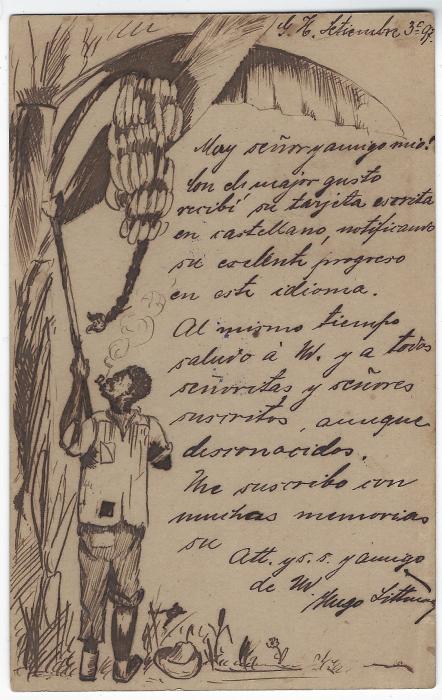 G. H. Setiembre 3 97.
Muy señor y amigo mio!
Con el major gusto
recibí su tarjeta escrita
en castellano, notificando
su exelente progreso
en este idioma.
Al mismo tiempo
saludo á W. y a todos
señoritas y señores
suscritos, aunque
desconocidos.
Me suscribo con
muchas memorias
su
Att. y s. s. y amigo
de W
Hugo